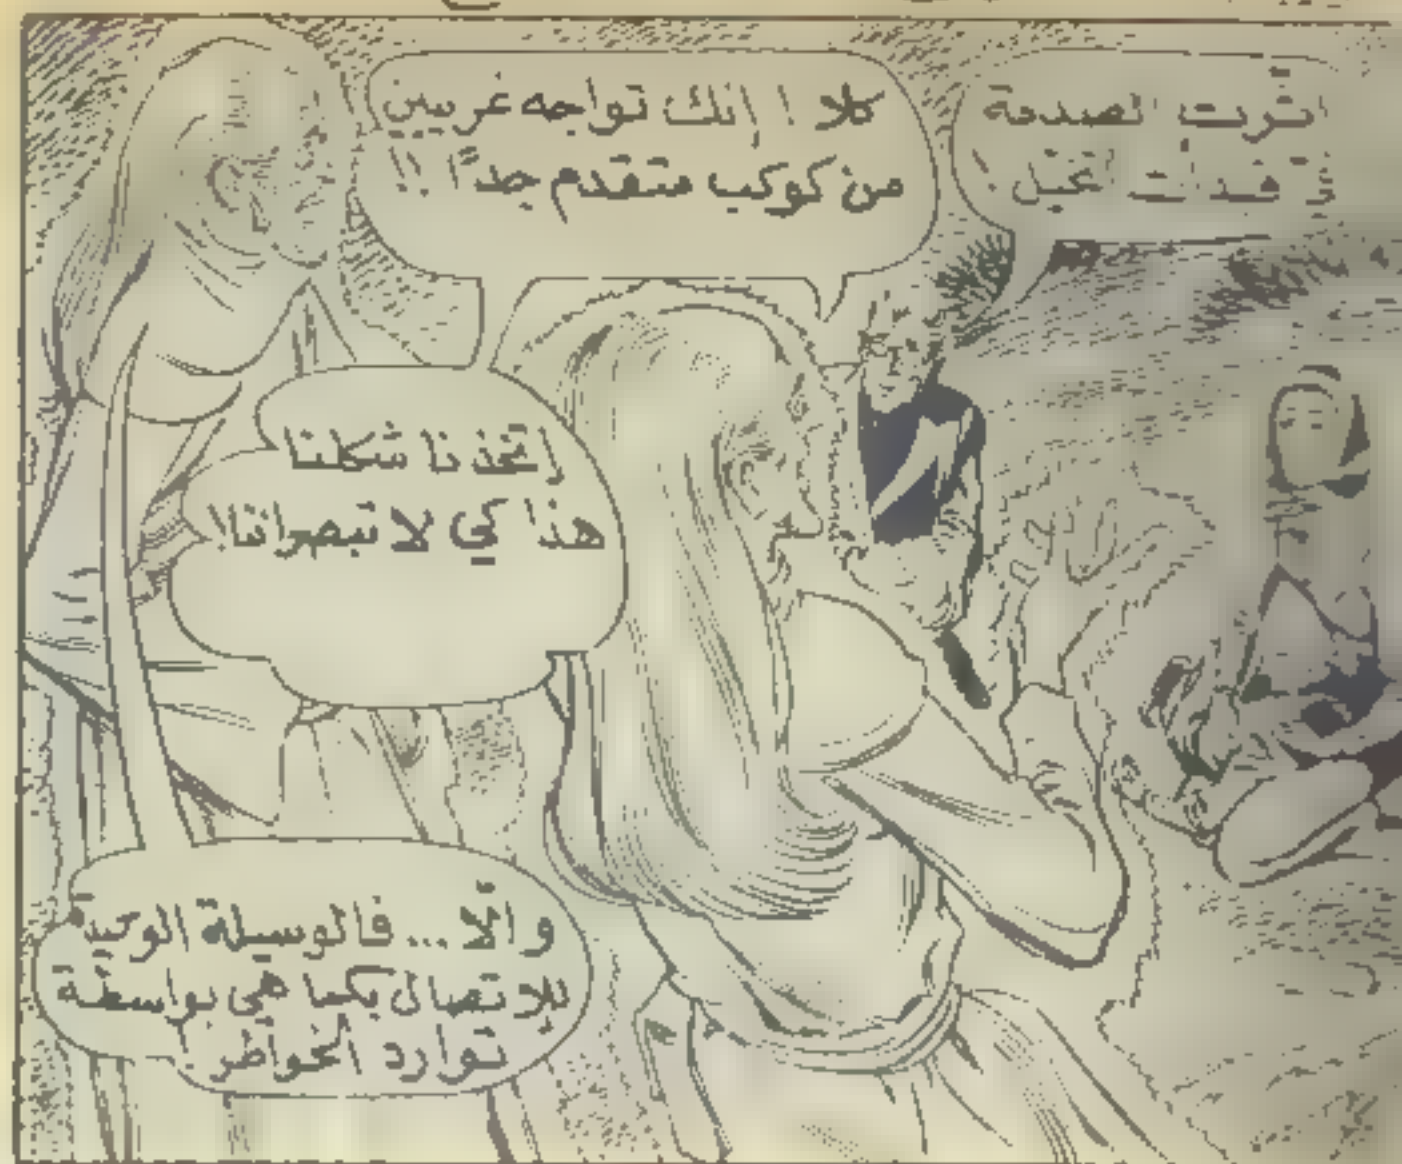 اثرت الصدمة
فيّ فبدأت اتخيل !
كلا ! إنك تواجه غريبين
من كوكب متقدم جدًا !!
إتخذنا شكلنا
هذا كي لا تبصراننا!
والّا ... فالوسيلة الوحيدة
للاتصال بكما هي بواسطة
توارد الخواطر !